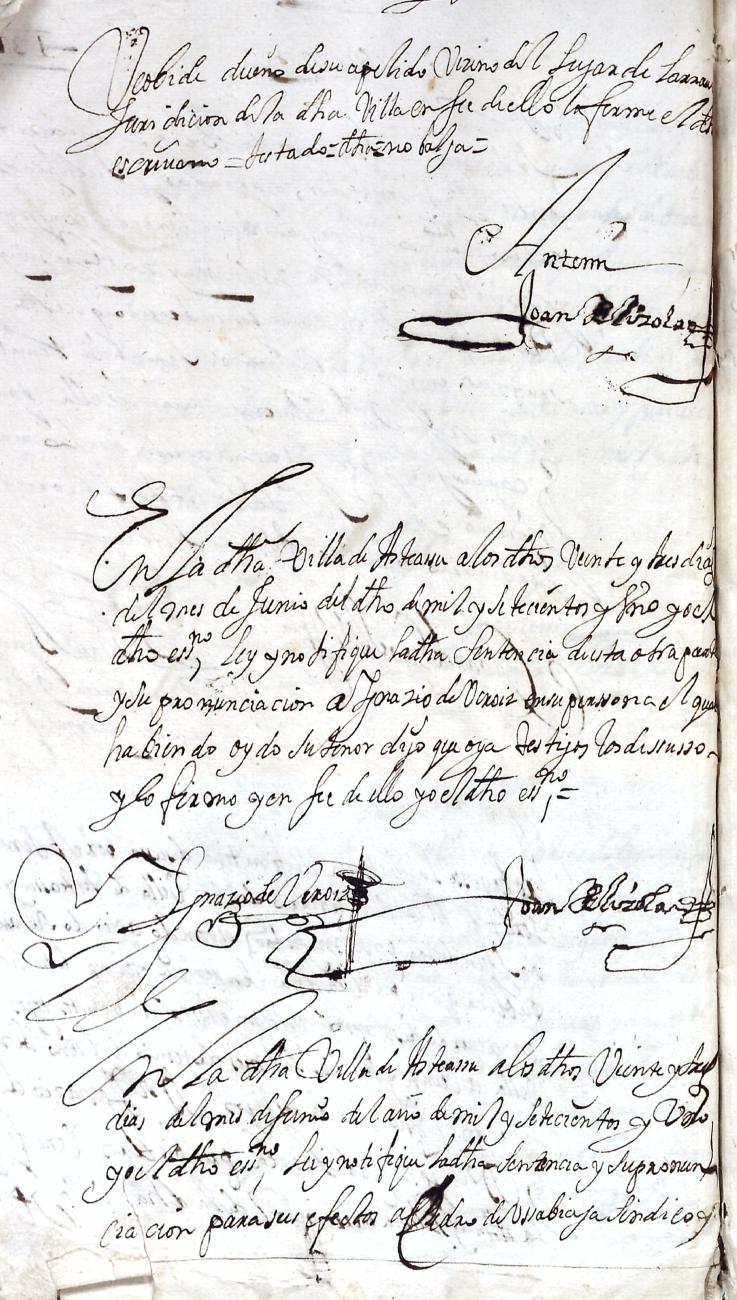 Ucobide dueño de su apelido Vezino del Lugar de Larrau
Juridicion de la dha Villa en fee de ello lo firme el dho
escrivano = testado = dha = no balga =
Ante mi
Joan de Elizola
En la dha Villa de Asteasu a los dhos Veinte y tres dias
del mes de Junio del dho de mil y setecientos y Vno yo el
dho essno, Ley y notifique la dha Sentencia desta otra parte
y su pronunciacion a Ignazio de Veroiz en su perssona el qual
habiendo oydo su tenor dijo que oya testigos los de susso
y lo firmo y en fee de ello yo el dho essno, =
Ignazio de Veroiz Joan de Elizola
En la dha Villa de Asteasu a los dhos Veinte y tres
dias del mes de Junio del año de mil y setecientos y Vno
yo el dho essno, Lei y notifique la dha Sentencia y su pronun
ciacion para sus efectos a Pedro de Ussabiaga Sindico